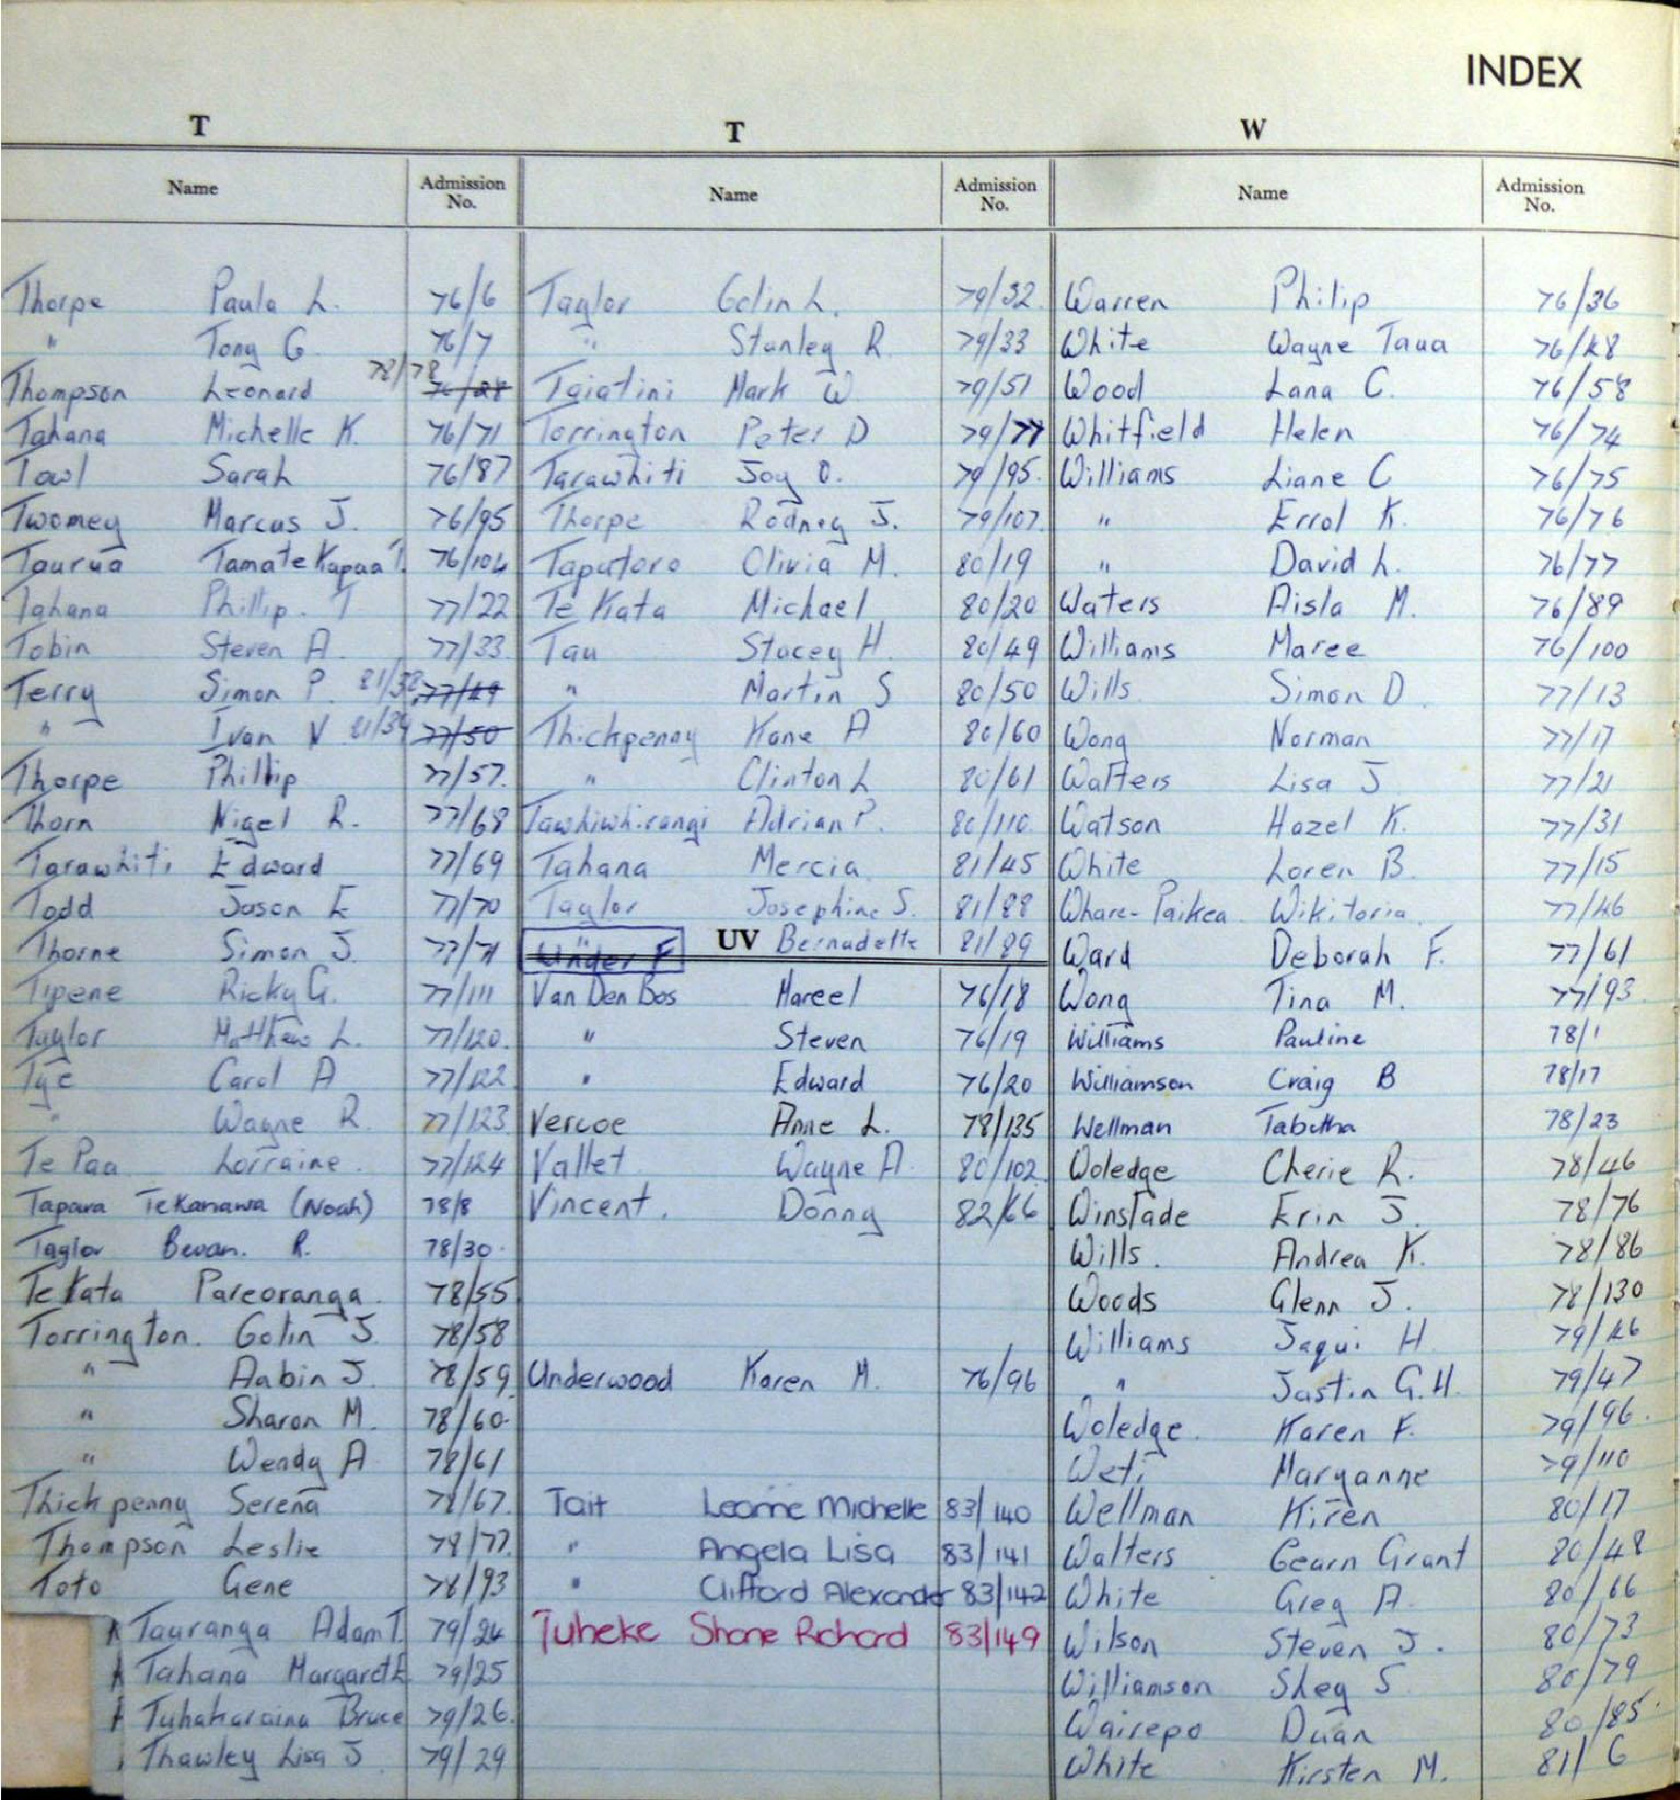 INDEX
T
Name Admission No.
Thorpe Paula L. 76/6
" Tony G 76/7
Thompson Leonard 78/78 76/28
Tahana Michelle K. 76/71
Towl Sarah 76/87
Twomey Marcus J. 76/95
Taurua Tamate Kapua T. 76/104
Tahana Phillip. T 77/22
Tobin Steven A. 77/33
Terry Simon P. 81/38 77/49
" Ivan V 81/39 77/50
Thorpe Phillip 77/57.
Thorn Nigel R. 77/68
Tarawhiti Edward 77/69
Todd Jason E 77/70
Thorne Simon J. 77/71
Tipene Ricky G. 77/111
Taylor Matthew L. 77/120.
Tye Carol A 77/122
" Wayne R. 77/123
Te Paa Lorraine. 77/124
Tapara TeKanawa (Noah) 78/8
Taylor Bevan. R. 78/30.
Te Kata Pareoranga. 78/55
Torrington. Colin J. 78/58
" Aabin J. 78/59
" Sharon M. 78/60
" Wendy A 78/61
Thickpenny Serena 78/67.
Thompson Leslie 78/77
Toto Gene 78/93
Tauranga Adam T. 79/24
Tahana Margaret E 79/25
Tuhakaraina Bruce 79/26.
Thawley Lisa J 79/29
T
Name Admission No.
Taylor Colin L. 79/32
" Stanley R 79/33
Taiatini Mark W. 79/51
Torrington Peter D 79/77
Tarawhiti Joy O. 79/95.
Thorpe Rodney J. 79/107.
Taputoro Olivia M. 80/19
Te Kata Michael 80/20
Tau Stacey H. 80/49
" Martin S 80/50
Thickpenny Kane A 80/60
" Clinton L 80/61
Tawhiwhirangi Adrian P. 80/110
Tahana Mercia. 81/45
Taylor Josephine S. 81/88
Under F UV Bernadette 81/89
Van Den Bos Marcel 76/18
" Steven 76/19
" Edward 76/20
Vercoe Anne L. 78/135
Vallet Wayne A. 80/102
Vincent. Donny 82/66
Underwood Karen M. 76/96
Tait Leanne Michelle 83/140
" Angela Lisa 83/141
" Clifford Alexander 83/142
Tuheke Shane Richard 83/149
W
Name Admission No.
Warren Philip 76/36
White Wayne Taua 76/48
Wood Lana C. 76/58
Whitfield Helen 76/74
Williams Liane C 76/75
" Errol K. 76/76
" David L. 76/77
Waters Aisla M. 76/89
Williams Maree 76/100
Wills. Simon D. 77/13
Wong Norman 77/17
Watters Lisa J 77/21
Watson Hazel K. 77/31
White Loren B. 77/15
Whare-Paikea. Wikitoria. 77/46
Ward Deborah F. 77/61
Wong Tina M. 77/93
Williams Pauline 78/1
Williamson Craig B 78/17
Wellman Tabitha 78/23
Woledge Cherie R. 78/46
Winslade Erin J. 78/76
Wills. Andrea K. 78/86
Woods Glenn J. 78/130
Williams Jaqui H 79/46
" Justin G.H. 79/47
Woledge. Karen F. 79/96.
Weti Maryanne 79/110
Wellman Kiren 80/17
Walters Gearn Grant 80/48
White Greg A. 80/66
Wilson Steven J. 80/73
Williamson Shey S 80/79
Wairepo Duan 80/85.
White Kirsten M. 81/6